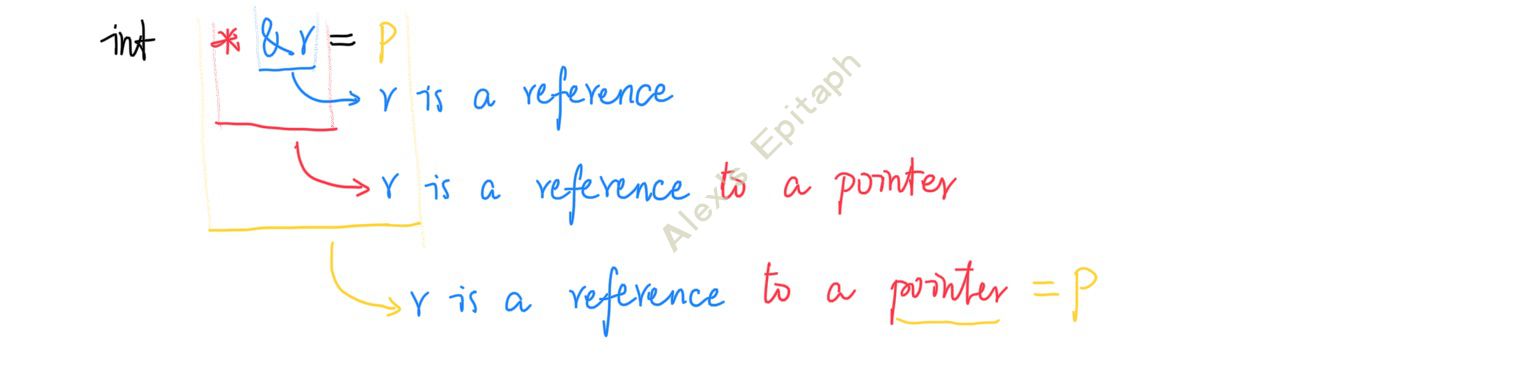 int * &r = p
r is a reference
r is a reference to a pointer
r is a reference to a pointer = p
Alex's Epitaph